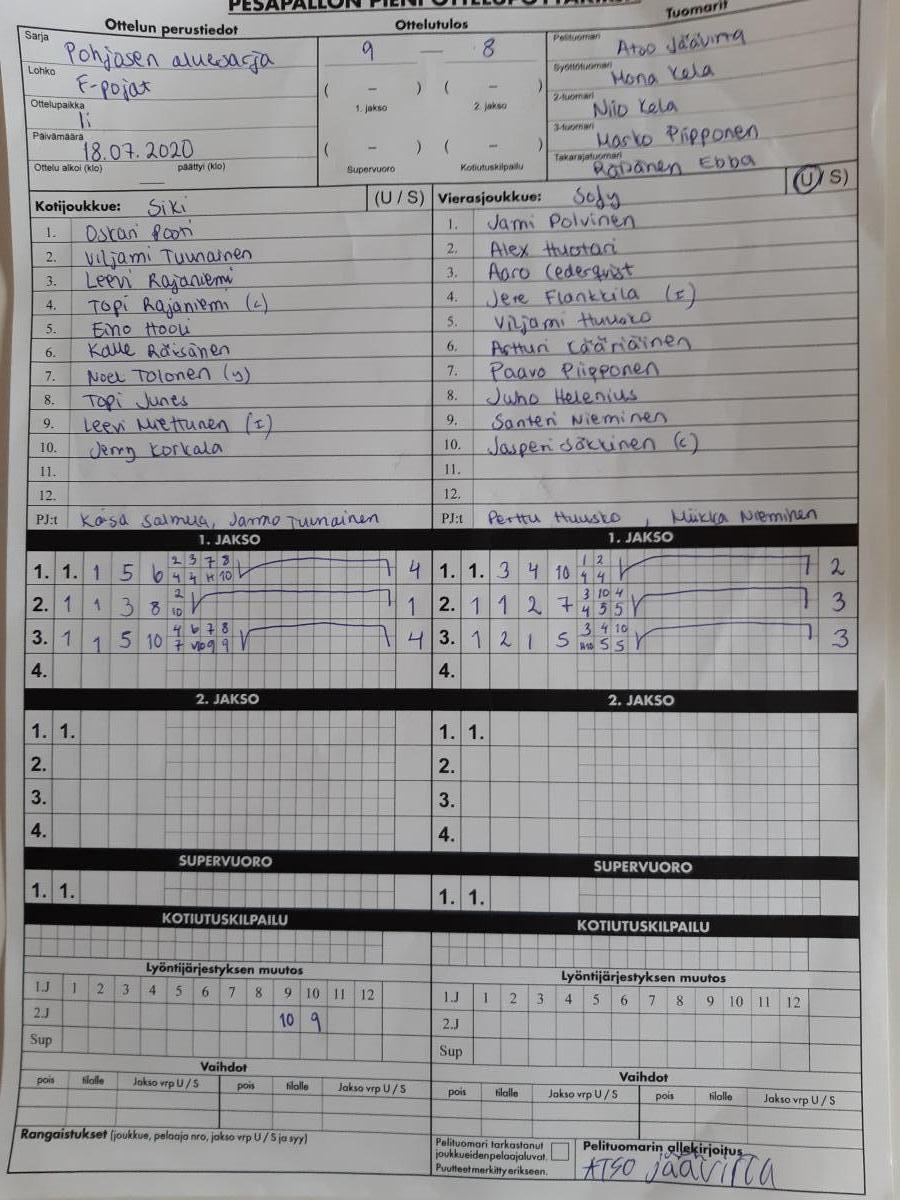 PESÄPALLON PIENI OTTELUPÖYTÄKIRJA
Ottelun perustiedot
Sarja Pohjasen aluesarja
Lohko F-pojat
Ottelupaikka Ii
Päivämäärä 18.07.2020
Ottelu alkoi (klo) päättyi (klo)
Ottelutulos
9 — 8
( – ) ( – )
1. jakso 2. jakso
( – ) ( – )
Supervuoro Kotiutuskilpailu
Tuomarit
Pelituomari Atso Jäävirta
Syöttötuomari Mona Kela
2-tuomari Niio Kela
3-tuomari Marko Piipponen
Takarajatuomari Räisänen Ebba
Kotijoukkue: Siki (U / S)
1. Oskari Pooti
2. Viljami Tuunainen
3. Leevi Rajaniemi
4. Topi Rajaniemi (c)
5. Eino Hooli
6. Kalle Räisänen
7. Noel Tolonen (y)
8. Topi Junes
9. Leevi Miettunen (I)
10. Jerry Korkala
11.
12.
PJ:t Jarmo Tuunainen
Vierasjoukkue: SoJy (U / S)
1. Jami Polvinen
2. Alex Huotari
3. Aaro Cederqvist
4. Jere Flankkila (I)
5. Viljami Huusko
6. Artturi Kääriäinen
7. Paavo Piipponen
8. Juho Helenius
9. Santeri Nieminen
10. Jasperi Säkkinen (c)
11.
12.
PJ:t Perttu Huusko , Miikka Nieminen
1. JAKSO
1. 1. 1 5 6 2 3 7 8 4
4 4 H 10
2. 1 1 3 8 2 1
10
3. 1 1 5 10 4 6 7 8 4
7 9 9
4.
1. JAKSO
1. 1. 3 4 10 1 2 2
4 4
2. 1 1 2 7 3 10 4 3
4 5 5
3. 1 2 1 5 3 4 10 3
5 5
4.
2. JAKSO
1. 1.
2.
3.
4.
2. JAKSO
1. 1.
2.
3.
4.
SUPERVUORO
1. 1.
SUPERVUORO
1. 1.
KOTIUTUSKILPAILU
KOTIUTUSKILPAILU
Lyöntijärjestyksen muutos
1.J 1 2 3 4 5 6 7 8 9 10 11 12
2.J 10 9
Sup
Lyöntijärjestyksen muutos
1.J 1 2 3 4 5 6 7 8 9 10 11 12
2.J
Sup
Vaihdot
pois tilalle Jakso vrp U / S pois tilalle Jakso vrp U / S
Vaihdot
pois tilalle Jakso vrp U / S pois tilalle Jakso vrp U / S
Rangaistukset (joukkue, pelaaja nro, jakso vrp U / S ja syy)
Pelituomari tarkastanut
joukkueidenpelaajaluvat.
Puutteetmerkitty erikseen.
Pelituomarin allekirjoitus
ATSO Jäävirta